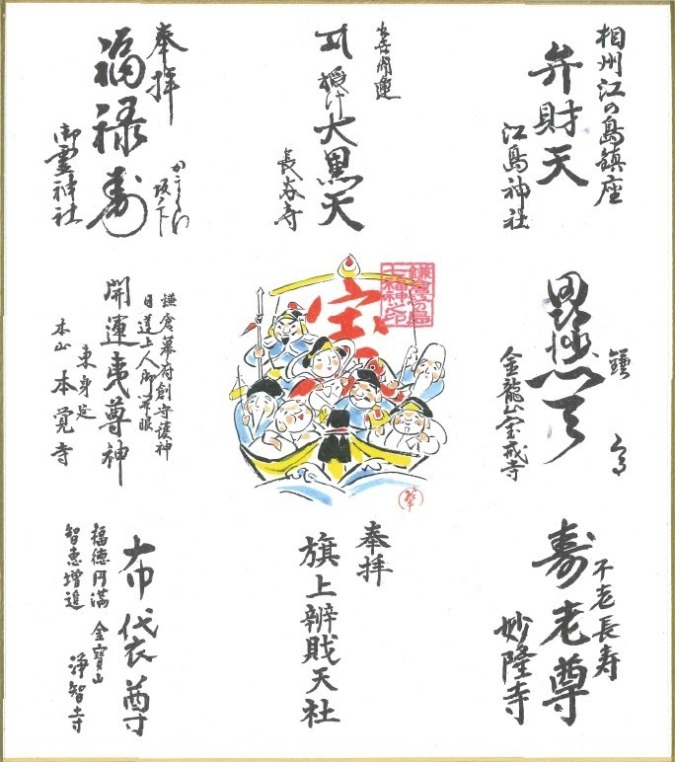 相州江の島鎮座
弁財天
江島神社
開運
授け大黒天
長谷寺
奉拝
福禄寿
かまくら
坂ノ下
御霊神社
鎌倉
毘沙門天
金龍山宝戒寺
宝
鎌倉江の島
七福神之印
鎌倉幕府創守護神
日道上人御開眼
開運夷尊神
東身延
本山 本覚寺
不老長寿
寿老尊
妙隆寺
奉拝
旗上辨財天社
布袋尊
金寶山 浄智寺
福徳円満
智恵増進